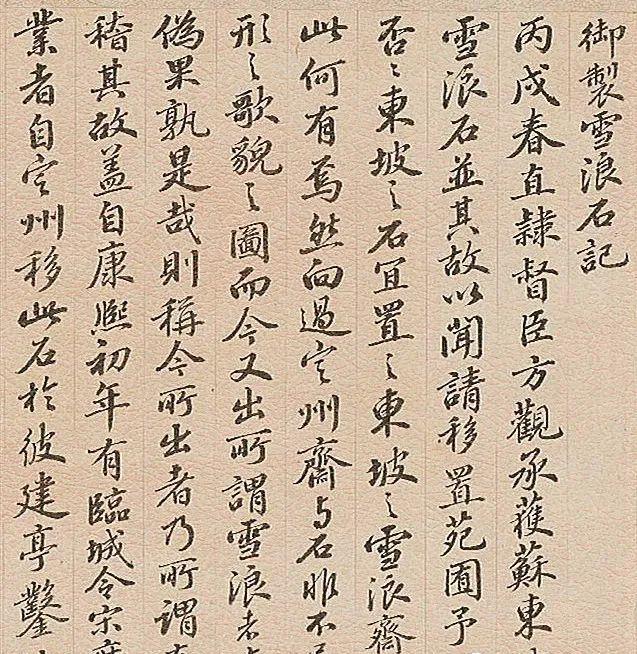 御製雪浪石記
丙戌春直隸督臣方觀承獲蘇東
雪浪石並其故以聞請移置苑囿予
否〻東坡〻石宜置〻東坡〻雪浪齋
此何有焉然向過定州齋与石咄不
形〻歌貌〻圖而今又出所謂雪浪者
偽果孰是哉則稱今所出者乃所謂
稽其故盖自康熙初年有臨城令宋
業者自定州移此石於彼建亭鑿